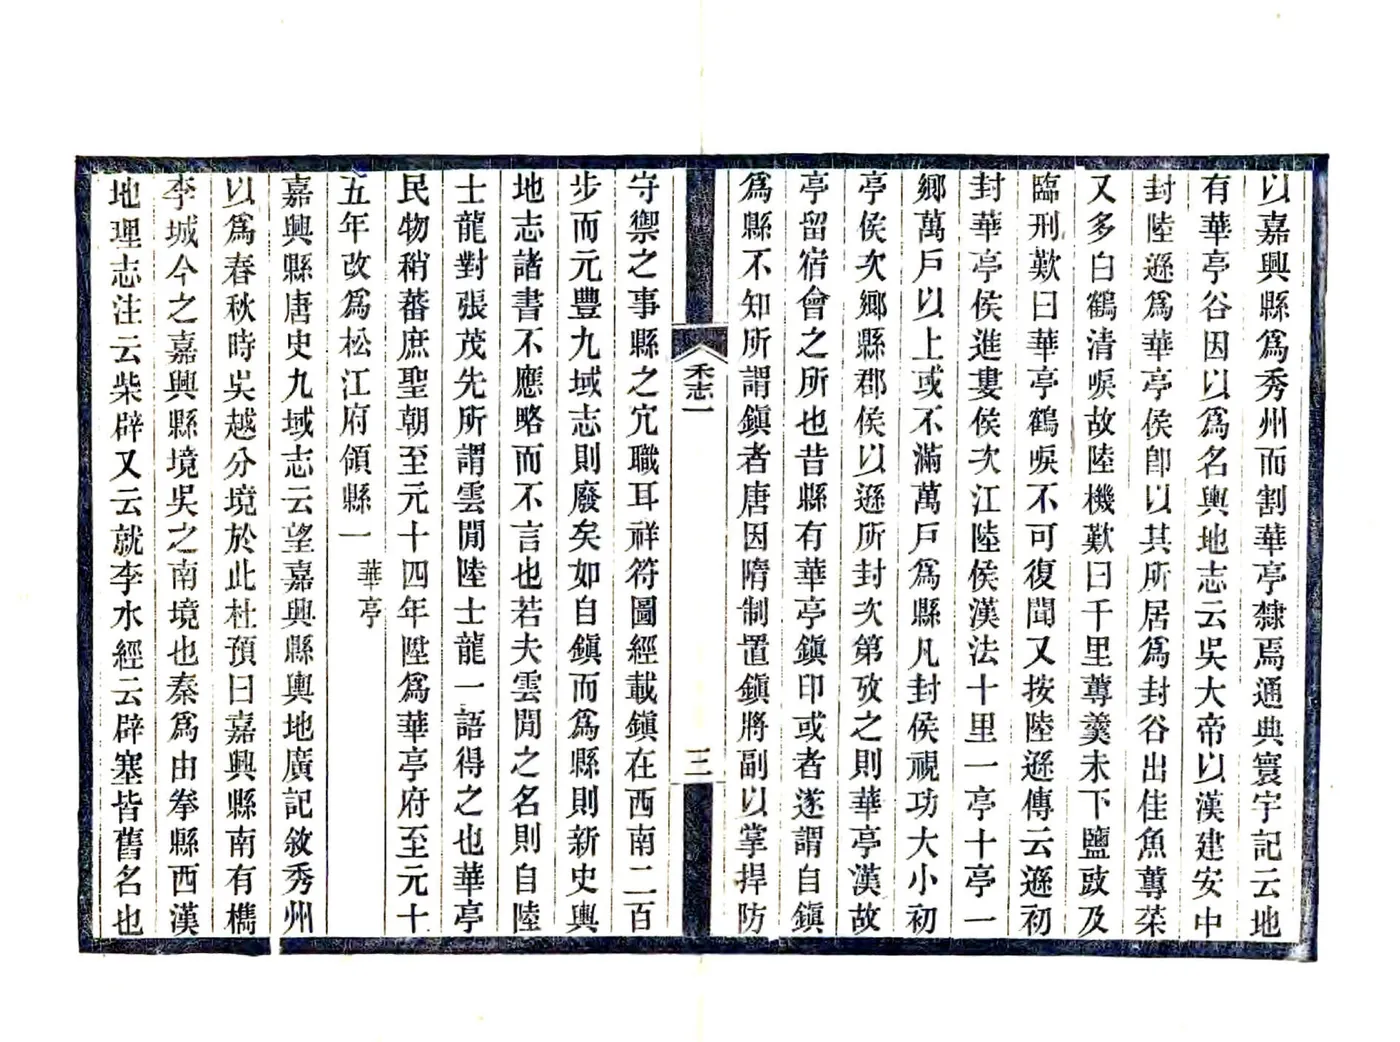 以嘉興縣爲秀州而割華亭隸焉通典寰宇記云地
有華亭谷因以爲名輿地志云吳大帝以漢建安中
封陸遜爲華亭侯卽以其所居爲封谷出佳魚蓴菜
又多白鶴清唳故陸機歎曰千里蓴羹未下鹽豉及
臨刑歎曰華亭鶴唳不可復聞又按陸遜傳云遜初
封華亭侯進婁侯次江陸侯漢法十里一亭十亭一
鄉萬戶以上或不滿萬戶爲縣凡封侯視功大小初
亭侯次鄉縣郡侯以遜所封次第攷之則華亭漢故
亭留宿會之所也昔縣有華亭鎮印或者遂謂自鎮
爲縣不知所謂鎮者唐因隋制置鎮將副以掌捍防
禾志一
三
守禦之事縣之宂職耳祥符圖經載鎮在西南二百
步而元豐九域志則廢矣如自鎮而爲縣則新史輿
地志諸書不應略而不言也若夫雲閒之名則自陸
士龍對張茂先所謂雲閒陸士龍一語得之也華亭
民物稍蕃庶聖朝至元十四年陞爲華亭府至元十
五年改爲松江府領縣一 華亭
嘉興縣唐史九域志云望嘉興縣輿地廣記敘秀州
以爲春秋時吳越分境於此杜預曰嘉興縣南有檇
李城今之嘉興縣境吳之南境也秦爲由拳縣西漢
地理志注云柴辟又云就李水經云辟塞皆舊名也